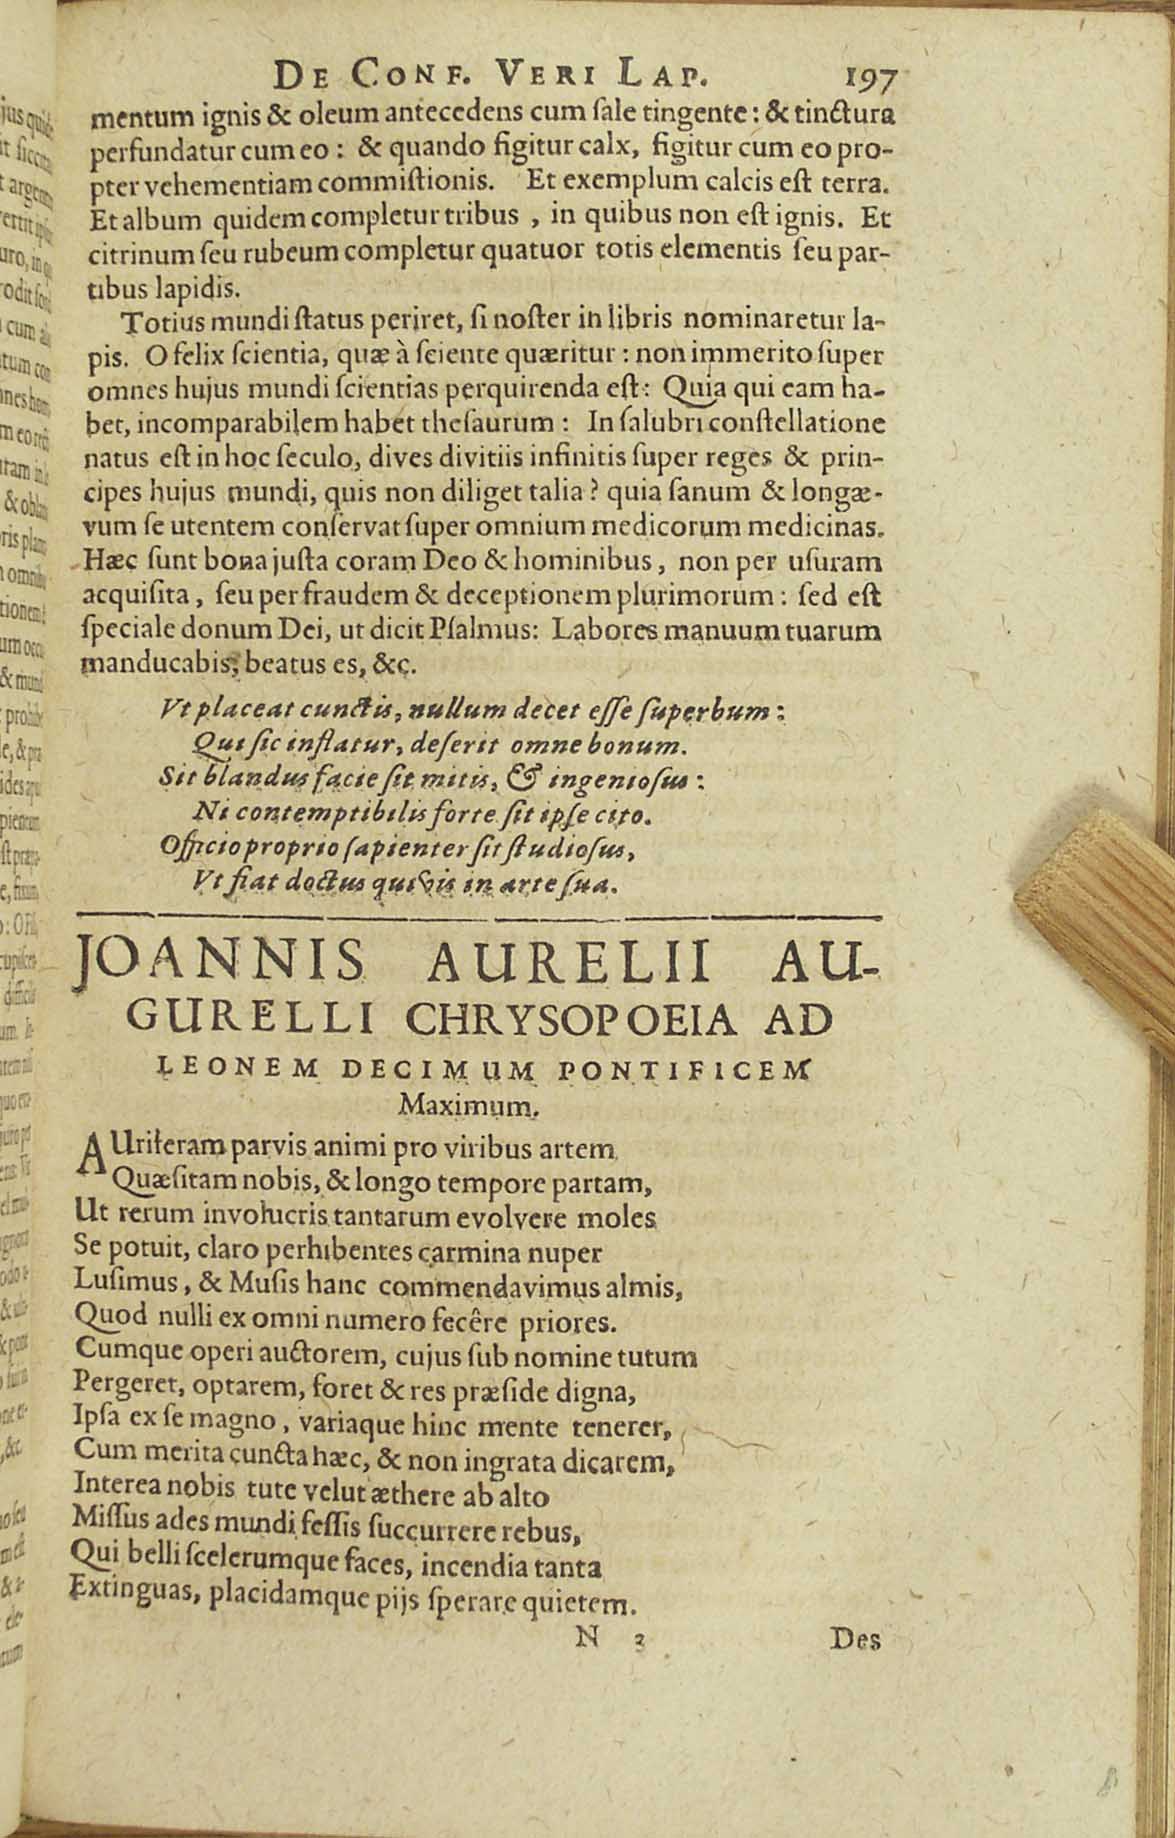 DE CONF. VERI LAP. 197
mentum ignis & oleum antecedens cum ſale tingente: & tinctura
perfundatur cum eo: & quando figitur calx, figitur cum eo pro-
pter vehementiam commiſtionis. Et exemplum calcis eſt terra.
Et album quidem completur tribus, in quibus non eſt ignis. Et
citrinum ſeu rubeum completur quatuor totis elementis ſeu par-
tibus lapidis.
Totius mundi ſtatus periret, ſi noſter in libris nominaretur la-
pis. O felix ſcientia, quæ à ſciente quæritur: non immerito ſuper
omnes hujus mundi ſcientias perquirenda eſt: Quia qui eam ha-
bet, incomparabilem habet theſaurum: In ſalubri conſtellatione
natus eſt in hoc ſeculo, dives divitiis infinitis ſuper reges & prin-
cipes hujus mundi, quis non diliget talia? quia ſanum & longæ-
vum ſe utentem conſervat ſuper omnium medicorum medicinas.
Hæc ſunt bona juſta coram Deo & hominibus, non per uſuram
acquiſita, ſeu per fraudem & deceptionem plurimorum: ſed eſt
ſpeciale donum Dei, ut dicit Pſalmus: Labores manuum tuarum
manducabis; beatus es, &c.
Vt placeat cunctis, nullum decet eſſe ſuperbum:
Qui ſic inflatur, deſerit omne bonum.
Sit blandus facie ſit mitis, & ingenioſus:
Ni contemptibilis forte ſit ipſe cito.
Officio proprio ſapienter ſit ſtudioſus,
Vt fiat doctus quivis in arte ſua.
JOANNIS AURELII AU-
GURELLI CHRYSOPOEIA AD
LEONEM DECIMUM PONTIFICEM
Maximum.
AUriferam parvis animi pro viribus artem
Quæſitam nobis, & longo tempore partam,
Ut rerum involucris tantarum evolvere moles
Se potuit, claro perhibentes carmina nuper
Luſimus, & Muſis hanc commendavimus almis,
Quod nulli ex omni numero fecêre priores.
Cumque operi auctorem, cujus ſub nomine tutum
Pergeret, optarem, foret & res præſide digna,
Ipſa ex ſe magno, variaque hinc mente tenerer,
Cum merita cuncta hæc, & non ingrata dicarem,
Interea nobis tute velut æthere ab alto
Miſſus ades mundi feſſis ſuccurrere rebus,
Qui belli ſcelerumque faces, incendia tanta
Extinguas, placidamque pijs ſperare quietem.
N 3 Des